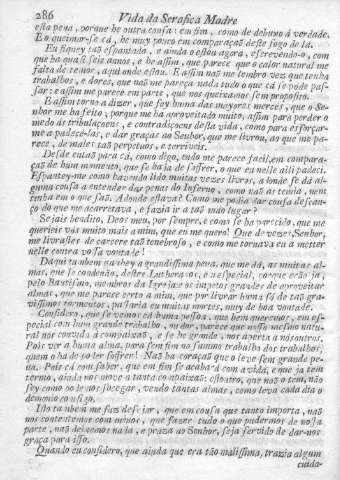 286 Vida da Serafica Madre
esta pena, porque he outra cousa: em fim, como de debuxo á verdade.
E o queimar-se cá, he muy pouco em comparaçaõ deste fogo de lá.
Eu fiquey taõ espantada, e ainda o estou agora, escrevendo-o, com
que ha quasi seis annos, e he assim, que parece, que o calor natural me
falta de temor, aqui onde estou. E assim naõ me lembro vez que tenha
trabalhos, e dores, que naõ me pareça nada tudo o que cá se póde pas-
sar: e assim me parece em parte, que nos queixamos sem proposito.
E assim torno a dizer, que foy huma das mayores mercês, que o Se-
nhor me ha feito; porque me ha aproveitado muito, assim para perder o
medo ás tribulaçoens, e contradiçoens desta vida, como para esforçar-
me a padecellas, e dar graças ao Senhor, que me livrou, ao que me pa-
rece, de males taõ perpetuos, e terriveis.
Desde entaõ para cá, como digo, tudo me parece facil, em compara-
çaõ de hum momento, que se haja de soffrer, o que eu nelle alli padeci.
Espantey-me como havendo lido muitas vezes livros, aonde se dá al-
guma cousa a entender das penas do Inferno, como naõ as temia, nem
tinha em o que saõ. Adonde estava? Como me podia dar cousa descan-
ço do que me acarretava, e fazia ir a taõ máo lugar?
Sejais bendito, Deos meu, por sempre, e como se ha parecido, que me
querieis vós muito mais a mim, que eu me quero! Que de vezes, Senhor,
me livrastes de carcere taõ tenebroso, e como me tornava eu a metter
nelle contra vossa vontade!
Daqui tambem ganhey a grandissima pena, que me dá, as muitas al-
mas, que se condenaõ, destes Lutheranos, e
pelo Bautismo, membros da Igreja, e os impetos grandes de aproveitar
almas, que me parece certo a mim, que por livrar huma só de taõ gra-
vissimos tormentos, passaria eu muitas mortes, muy de boa vontade.
Considero, que se vemos cá huma pessoa, que bem queremos, em es-
pecial com hum grande trabalho, ou dor, parece que nosso mesmo natu-
ral nos convida a compaixaõ, e se he grande, nos aperta a nós outros.
Pois ver a huma alma, para sem fim no summo trabalho dos trabalhos,
quem o ha de poder soffrer! Naõ ha coraçaõ que o leve sem grande pe-
na. Pois cá com saber, que em fim se acabará com a vida, e que já tem
termo, ainda nos move a tanta compaixaõ: estoutro, que naõ o tem, naõ
sey como podemos socegar, vendo tantas almas, como leva cada dia o
demonio comsigo.
Isto tambem me faz desejar, que em cousa que tanto importa, naõ
nos contentemos com menos, que fazer tudo o que pudermos de nossa
parte, naõ deixemos nada, e praza ao Senhor, seja servido de dar-nos
graça para isso.
Quando eu considero, que ainda que era tão malissima, trazia algum
cuida-